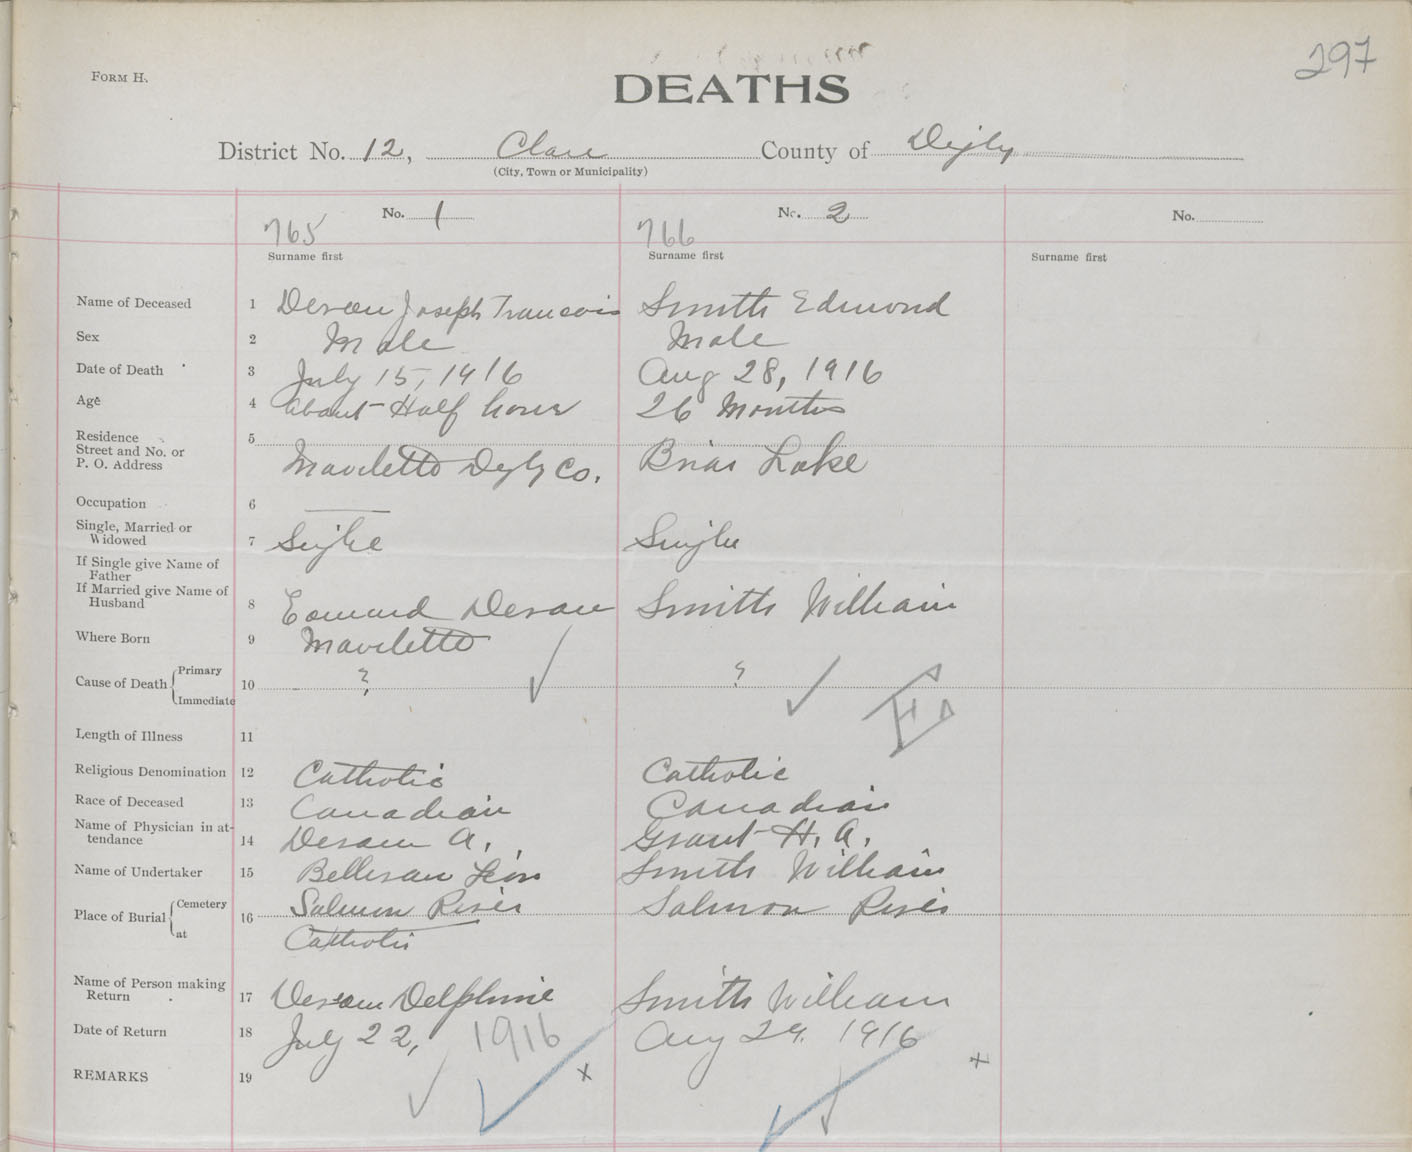 297
FORM H.
DEATHS
District No. 12, Clare County of Digby
(City, Town or Municipality)
No. 1 No. 2 No.
765 766
Surname first Surname first Surname first
Name of Deceased 1 Deveau Joseph Francois Smith Edmond
Sex 2 Male Male
Date of Death 3 July 15, 1916 Aug 28, 1916
Age 4 about Half hour 26 Months
Residence 5
Street and No. or
P. O. Address Mavilette Digby Co. Briar Lake
Occupation 6 —
Single, Married or
Widowed 7 Single Single
If Single give Name of
Father
If Married give Name of
Husband 8 Edward Deveau Smith William
Where Born 9 Mavilette
Cause of Death Primary 10 ? ?
Immediate
Length of Illness 11
Religious Denomination 12 Catholic Catholic
Race of Deceased 13 Canadian Canadian
Name of Physician in at-
tendance 14 Deveau A. Grant H. A.
Name of Undertaker 15 Belliveau Léon Smith William
Place of Burial Cemetery 16 Salmon River Salmon River
at Catholic
Name of Person making
Return 17 Deveau Delphine Smith William
Date of Return 18 July 22, 1916 Aug 29. 1916
REMARKS 19 x x